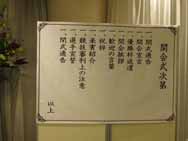 開会式次第
一 開式通告
一 開会宣言
一 優勝杯返還
一 開会挨拶
一 歓迎の言葉
一 祝辞
一 来賓紹介
一 競技審判上の注意
一 選手宣誓
一 閉式通告
以上